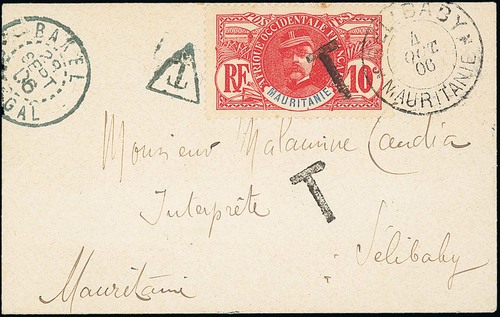 BAKEL
29
SEPT
06
GAL
T
AFRIQUE OCCIDENTALE FRANÇAISE
RF
10
MAURITANIE
T
BABY
4
OCT
06
MAURITANIE
Monsieur Malamine Candia
T
Interprète
Sélibaby
Mauritanie